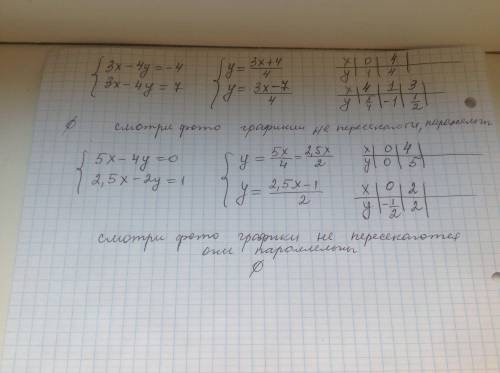 {3x-4y=-4 {y=(3x+4)/4 x | 0 | 4 |
{3x-4y=7 {y=(3x-7)/4 y | 1 | 4 |
x | 4 | 1 | 3
y | 5/4 | -1 | 1/2
∅ смотри фото графики не пересекаются, параллельн
{5x-4y=0 {y=5x/4=2,5x/2 x | 0 | 4 |
{2,5x-2y=1 {y=(2,5x-1)/2 y | 0 | 5 |
x | 0 | 2 |
y | -1/2 | 2 |
смотри фото графики не пересекаются
они параллельны
∅